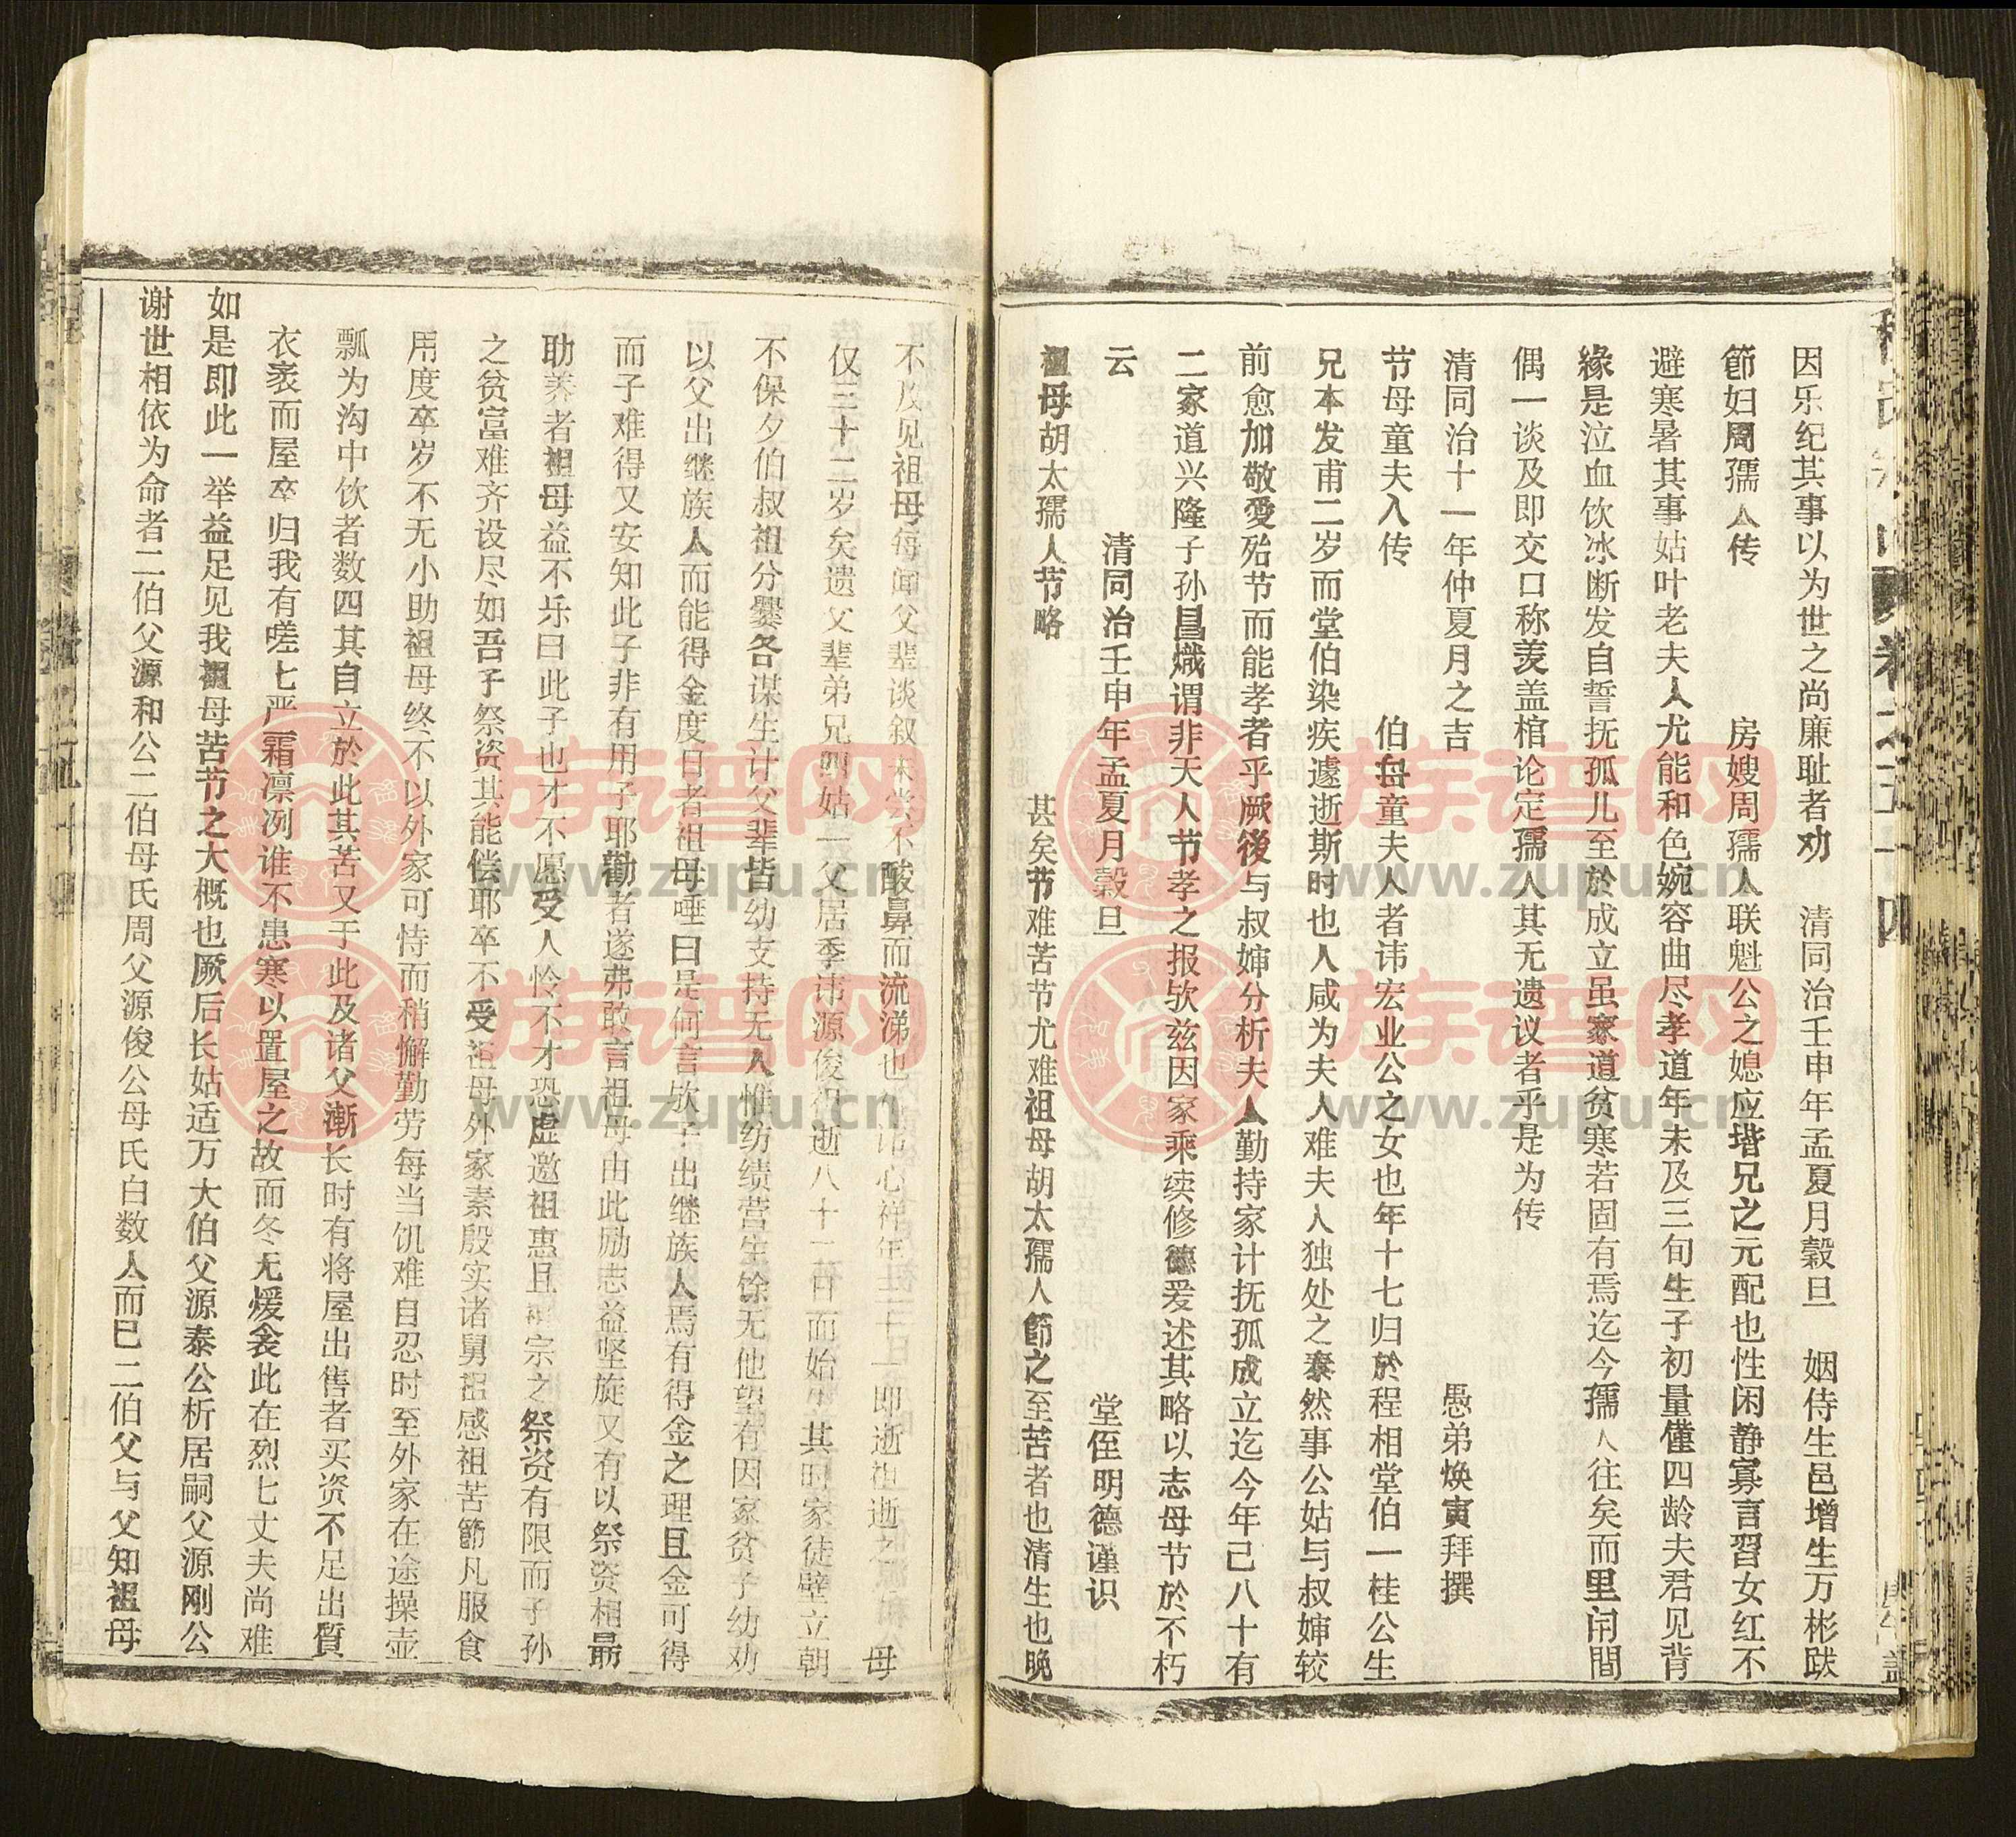 因乐纪其事以为世之尚廉耻者劝 清同治壬申年孟夏月穀旦 姻侍生邑增生万彬跋
節妇周孺人传 房嫂周孺人联魁公之媳应堦兄之元配也性闲静寡言習女红不
避寒暑其事姑叶老夫人尤能和色婉容曲尽孝道年未及三旬生子初量僅四龄夫君见背
緣是泣血饮冰断发自誓抚孤儿至於成立虽家道贫寒若固有焉迄今孺人往矣而里闬間
偶一谈及即交口称羡盖棺论定孺人其无遗议者乎是为传
清同治十一年仲夏月之吉 愚弟焕寅拜撰
节母童夫入传 伯母童夫人者讳宏业公之女也年十七归於程相堂伯一桂公生
兄本发甫二岁而堂伯染疾遽逝斯时也人咸为夫人难夫人独处之泰然事公姑与叔婶较
前愈加敬愛殆节而能孝者乎厥後与叔婶分析夫人勤持家计抚孤成立迄今年已八十有
二家道兴隆子孙昌熾谓非天人节孝之报欤兹因家乘续修德爰述其略以志母节於不朽
云 清同治壬申年孟夏月穀旦 堂侄明德谨识
祖母胡太孺人节略 甚矣节难苦节尤难祖母胡太孺人節之至苦者也清生也晚
不及见祖母每闻父辈谈叙未尝不酸鼻而流涕也 讳心祥年三十一即逝祖逝之 母
仅三十二岁矣遗父辈弟兄四姑一父居季讳源俊祖逝八十一日而始生其时家徒壁立朝
不保夕伯叔祖分爨各谋生计父辈皆幼支持无人惟纺绩营生馀无他望有因家贫子幼劝
以父出继族人而能得金度日者祖母唾曰是何言欤子出继族人焉有得金之理且金可得
而子难得又安知此子非有用子耶勸者遂弗敢言祖母由此励志益坚旋又有以祭资相最
助养者祖母益不乐曰此子也才不愿受人怜不才恐虚邀祖惠且祖宗之祭资有限而子孙
之贫富难齐设尽如吾子祭资其能偿耶卒不受祖母外家素殷实诸舅祖感祖苦節凡服食
用度卒岁不无小助祖母终不以外家可恃而稍懈勤劳每当饥难自忍时至外家在途操壶
瓢为沟中饮者数四其自立於此其苦又于此及诸父渐长时有将屋出售者买资不足出質
衣裘而屋卒归我有嗟七严霜凛冽谁不患寒以置屋之故而冬无煖衾此在烈七丈夫尚难
如是即此一举益足见我祖母苦节之大概也厥后长姑适万大伯父源泰公析居嗣父源刚公
谢世相依为命者二伯父源和公二伯母氏周父源俊公母氏白数人而已二伯父与父知祖母